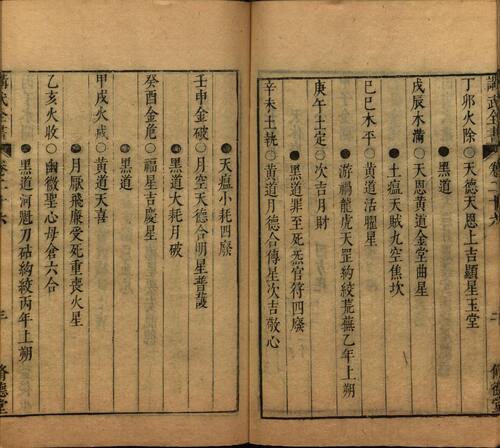 講武全書
卷二十六
二
脩德堂
丁卯火除○天德天恩上吉顯星玉堂
●黑道
戊辰木滿○天恩黃道金堂曲星
●土瘟天賊九空焦坎
己巳木平○黃道活曜星
●游禍龍虎天罡約絞荒蕪乙年上朔
庚午土定○次吉月財
●黑道罪至死炁官符四廢
辛未土執○黃道月德合傳星次吉敬心
●天瘟小耗四廢
壬申金破○月空天德合明星普護
●黑道大耗月破
癸酉金危○福星吉慶星
●黑道
甲戌火成○黃道天喜
●月厭飛廉受死重喪火星
乙亥火收○幽微聖心母倉六合
●黑道河魁刀砧約絞丙年上朔
講武全書
卷二十六
三
脩德堂